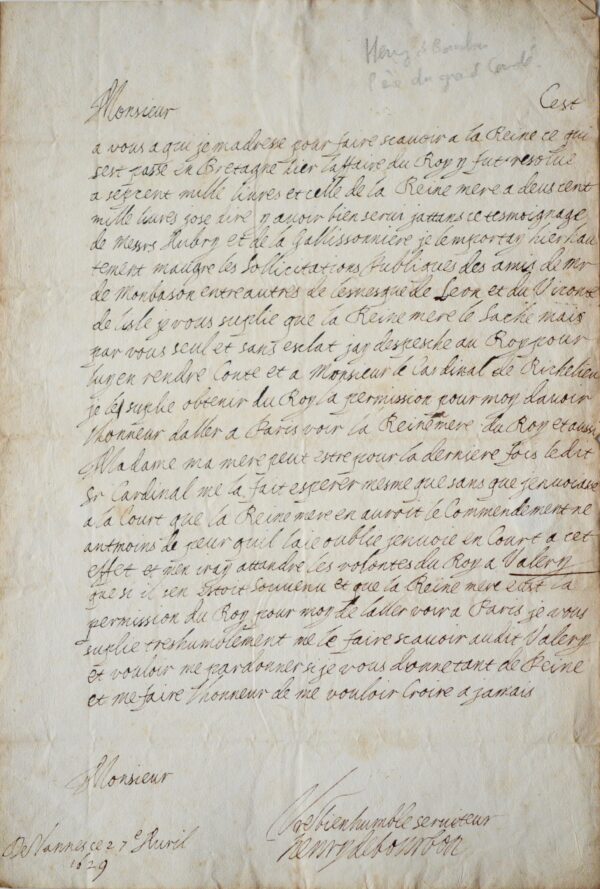 Henry de Bourbon
Père du grand Condé.
Monsieur Cest
a vous a qui je madresse pour faire scavoir a la Reine ce qui
sest passé en Bretagne hier laffaire du Roy y fut resolue
a sept cent mille livres et celle de la Reine mere a deus cent
mille livres jose dire y avoir bien servi jattans ce tesmoignage
de messrs Aubry et de la Gallissonniere je lemportay hier hau
tement maugre les sollicitations publiques des amis de mr
de Monbason entre autres de levesque de Leon et du Viconte
de lisle je vous suplie que la Reine mere le sache mais
par vous seul et sans esclat jay despesche au Roy pour
luy en rendre Conte et a Monsieur le Cardinal de Richelieu
je le suplie obtenir du Roy la permission pour moy davoir
lhonneur daller a Paris voir la Reine mere du Roy et aussi
Madame ma mere peut estre pour la derniere fois ledit
Sr Cardinal me la fait esperer mesme que sans que jenvoiasse
a la Court que la Reine mere en auroit le Commendement ne
antmoins de peur quil laie oublie jenvoie en Court a cet
effet et men iray attandre les volontes du Roy a Valery
que si il sen estoit souvenu et que la Reine mere eust la
permission du Roy pour moy de laller voir a Paris je vous
suplie treshumblement me le faire scavoir audit Valery
et vouloir me pardonner si je vous donne tant de Peine
et me faire lhonneur de me vouloir Croire a jamais
Monsieur
Vre bien humble serviteur
henry de bourbon
De Vannes ce 27e Avril
1629